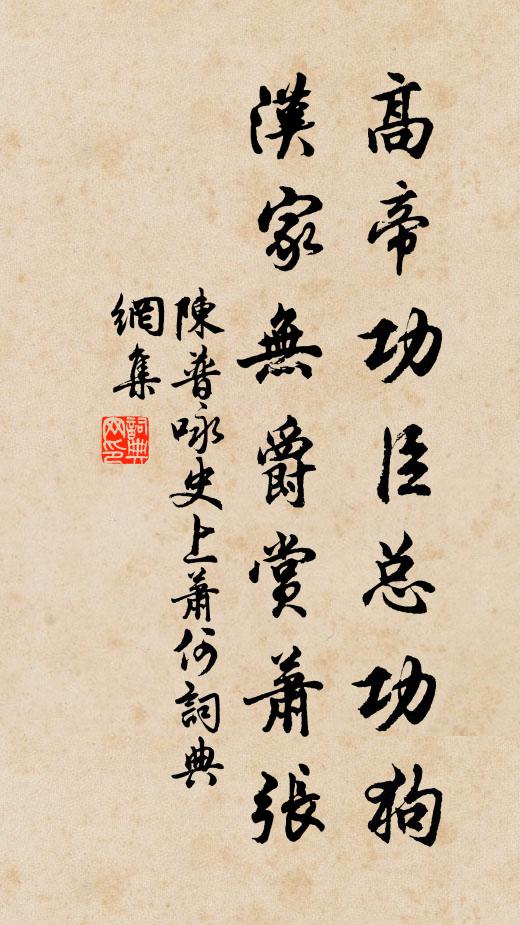 高帝功臣总功狗
漢家無爵賞蕭張
陳普咏史上蕭何詞典
網集
詞典
网印